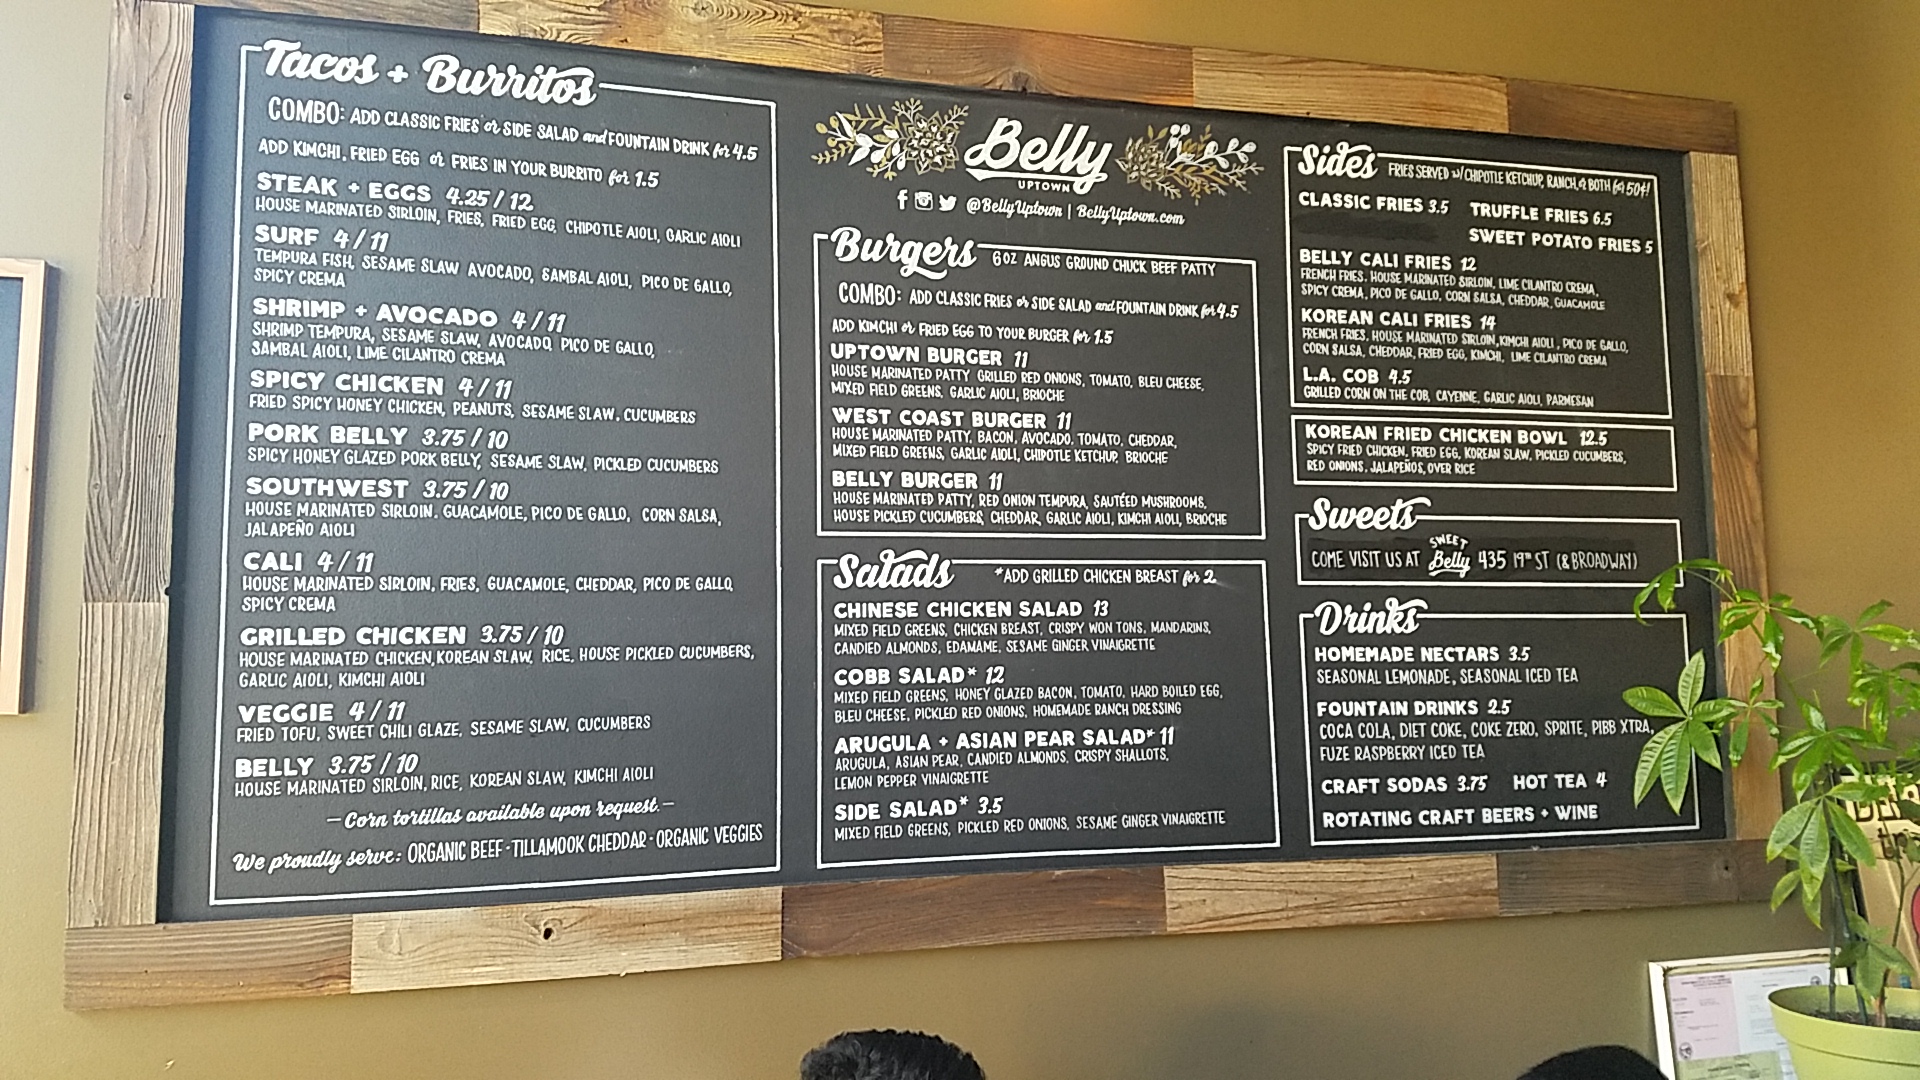 Tacos + Burritos
COMBO: ADD CLASSIC FRIES or SIDE SALAD and FOUNTAIN DRINK for 4.5
ADD KIMCHI, FRIED EGG or FRIES IN YOUR BURRITO for 1.5
STEAK + EGGS 4.25 / 12
HOUSE MARINATED SIRLOIN, FRIES, FRIED EGG, CHIPOTLE AIOLI, GARLIC AIOLI
SURF 4 / 11
TEMPURA FISH, SESAME SLAW AVOCADO, SAMBAL AIOLI, PICO DE GALLO,
SPICY CREMA
SHRIMP + AVOCADO 4 / 11
SHRIMP TEMPURA, SESAME SLAW, AVOCADO, PICO DE GALLO,
SAMBAL AIOLI, LIME CILANTRO CREMA
SPICY CHICKEN 4 / 11
FRIED SPICY HONEY CHICKEN, PEANUTS, SESAME SLAW, CUCUMBERS
PORK BELLY 3.75 / 10
SPICY HONEY GLAZED PORK BELLY, SESAME SLAW, PICKLED CUCUMBERS
SOUTHWEST 3.75 / 10
HOUSE MARINATED SIRLOIN, GUACAMOLE, PICO DE GALLO, CORN SALSA,
JALAPEÑO AIOLI
CALI 4 / 11
HOUSE MARINATED SIRLOIN, FRIES, GUACAMOLE, CHEDDAR, PICO DE GALLO,
SPICY CREMA
GRILLED CHICKEN 3.75 / 10
HOUSE MARINATED CHICKEN, KOREAN SLAW, RICE, HOUSE PICKLED CUCUMBERS,
GARLIC AIOLI, KIMCHI AIOLI
VEGGIE 4 / 11
FRIED TOFU, SWEET CHILI GLAZE, SESAME SLAW, CUCUMBERS
BELLY 3.75 / 10
HOUSE MARINATED SIRLOIN, RICE, KOREAN SLAW, KIMCHI AIOLI
- Corn tortillas available upon request. -
We proudly serve: ORGANIC BEEF · TILLAMOOK CHEDDAR · ORGANIC VEGGIES
Belly
UPTOWN
@BellyUptown | BellyUptown.com
Burgers 6 OZ ANGUS GROUND CHUCK BEEF PATTY
COMBO: ADD CLASSIC FRIES or SIDE SALAD and FOUNTAIN DRINK for 4.5
ADD KIMCHI or FRIED EGG TO YOUR BURGER for 1.5
UPTOWN BURGER 11
HOUSE MARINATED PATTY GRILLED RED ONIONS, TOMATO, BLEU CHEESE,
MIXED FIELD GREENS, GARLIC AIOLI, BRIOCHE
WEST COAST BURGER 11
HOUSE MARINATED PATTY, BACON, AVOCADO, TOMATO, CHEDDAR,
MIXED FIELD GREENS, GARLIC AIOLI, CHIPOTLE KETCHUP, BRIOCHE
BELLY BURGER 11
HOUSE MARINATED PATTY, RED ONION TEMPURA, SAUTÉED MUSHROOMS,
HOUSE PICKLED CUCUMBERS, CHEDDAR, GARLIC AIOLI, KIMCHI AIOLI, BRIOCHE
Salads *ADD GRILLED CHICKEN BREAST for 2
CHINESE CHICKEN SALAD 13
MIXED FIELD GREENS, CHICKEN BREAST, CRISPY WON TONS, MANDARINS,
CANDIED ALMONDS, EDAMAME, SESAME GINGER VINAIGRETTE
COBB SALAD* 12
MIXED FIELD GREENS, HONEY GLAZED BACON, TOMATO, HARD BOILED EGG,
BLEU CHEESE, PICKLED RED ONIONS, HOMEMADE RANCH DRESSING
ARUGULA + ASIAN PEAR SALAD* 11
ARUGULA, ASIAN PEAR, CANDIED ALMONDS, CRISPY SHALLOTS,
LEMON PEPPER VINAIGRETTE
SIDE SALAD* 3.5
MIXED FIELD GREENS, PICKLED RED ONIONS, SESAME GINGER VINAIGRETTE
Sides FRIES SERVED w/ CHIPOTLE KETCHUP, RANCH, or BOTH for 50¢!
CLASSIC FRIES 3.5 TRUFFLE FRIES 6.5
SWEET POTATO FRIES 5
BELLY CALI FRIES 12
FRENCH FRIES, HOUSE MARINATED SIRLOIN, LIME CILANTRO CREMA,
SPICY CREMA, PICO DE GALLO, CORN SALSA, CHEDDAR, GUACAMOLE
KOREAN CALI FRIES 14
FRENCH FRIES, HOUSE MARINATED SIRLOIN, KIMCHI AIOLI, PICO DE GALLO,
CORN SALSA, CHEDDAR, FRIED EGG, KIMCHI, LIME CILANTRO CREMA
L.A. COB 4.5
GRILLED CORN ON THE COB, CAYENNE, GARLIC AIOLI, PARMESAN
KOREAN FRIED CHICKEN BOWL 12.5
SPICY FRIED CHICKEN, FRIED EGG, KOREAN SLAW, PICKLED CUCUMBERS,
RED ONIONS, JALAPEÑOS, OVER RICE
Sweets
COME VISIT US AT SWEET Belly 435 19TH ST (& BROADWAY)
Drinks
HOMEMADE NECTARS 3.5
SEASONAL LEMONADE, SEASONAL ICED TEA
FOUNTAIN DRINKS 2.5
COCA COLA, DIET COKE, COKE ZERO, SPRITE, PIBB XTRA,
FUZE RASPBERRY ICED TEA
CRAFT SODAS 3.75 HOT TEA 4
ROTATING CRAFT BEERS + WINE